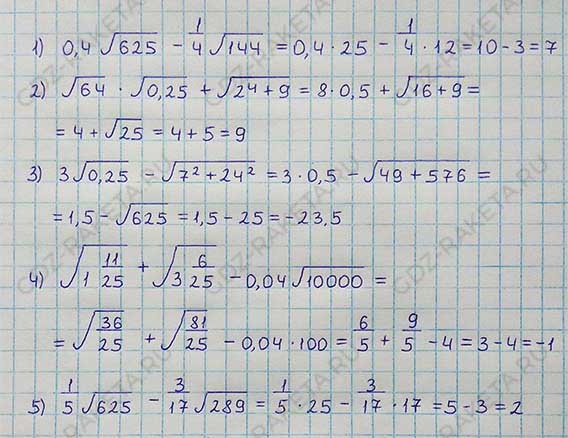 1) 0,4√625 - 1/4 √144 = 0,4 · 25 - 1/4 · 12 = 10 - 3 = 7
2) √64 · √0,25 + √(2⁴ + 9) = 8 · 0,5 + √(16 + 9) =
= 4 + √25 = 4 + 5 = 9
3) 3√0,25 - √(7² + 24²) = 3 · 0,5 - √(49 + 576) =
= 1,5 - √625 = 1,5 - 25 = -23,5
4) √(1 11/25) + √(3 6/25) - 0,04√10000 =
= √(36/25) + √(81/25) - 0,04 · 100 = 6/5 + 9/5 - 4 = 3 - 4 = -1
5) 1/5 √625 - 3/17 √289 = 1/5 · 25 - 3/17 · 17 = 5 - 3 = 2
GDZ-RAKETA.RU